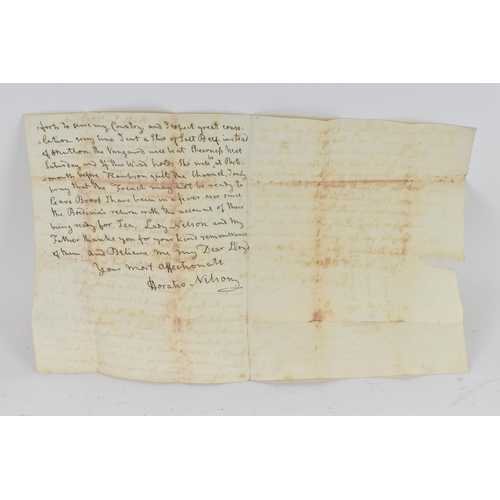 forts to serve my Country, and I expect great conso-
-lation every time I cut a Slice of Salt Beef instead
of Mutton the Vanguard will be at Sheerness Next
Saturday and If this Wind holds She will at Ports-
-mouth before quitts the Channel, I only
pray that the French may not be ready to
leave Brest I have been in a fever ever since
the return with the account of there
being ready for Sea, Lady Nelson and My
Father thanks you for your kind remembrance
of them, and Believe me my Dear Lloyd
Your Most Affectionate
Horatio Nelson